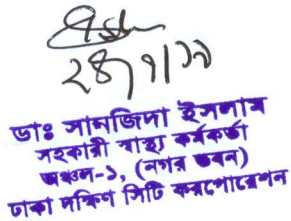 ২৪/৭/১৯
ডাঃ সানজিদা ইসলাম
সহকারী স্বাস্থ্য কর্মকর্তা
অঞ্চল-১, (নগর ভবন)
ঢাকা দক্ষিণ সিটি করপোরেশন